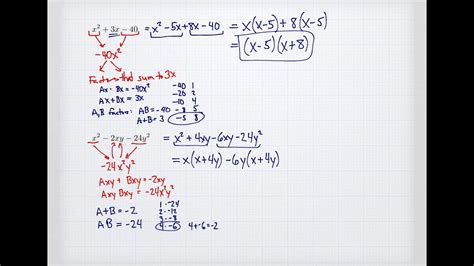 x² + 3x - 40 = x² - 5x + 8x - 40 = x(x-5) + 8(x-5)
= (x-5)(x+8)
-40x²
Factors that sum to 3x
Ax · Bx = -40x²
Ax + Bx = 3x
A,B factors: AB = -40
A+B = 3
-40 1
-20 2
-10 4
-8 5
-5 8
x² - 2xy - 24y² = x² + 4xy - 6xy - 24y²
= x(x+4y) - 6y(x+4y)
-24x²y²
Axy + Bxy = -2xy
Axy Bxy = -24x²y²
A+B = -2
AB = -24
1 · -24
2 · -12
3 · -8
4 · -6
4 + -6 = -2